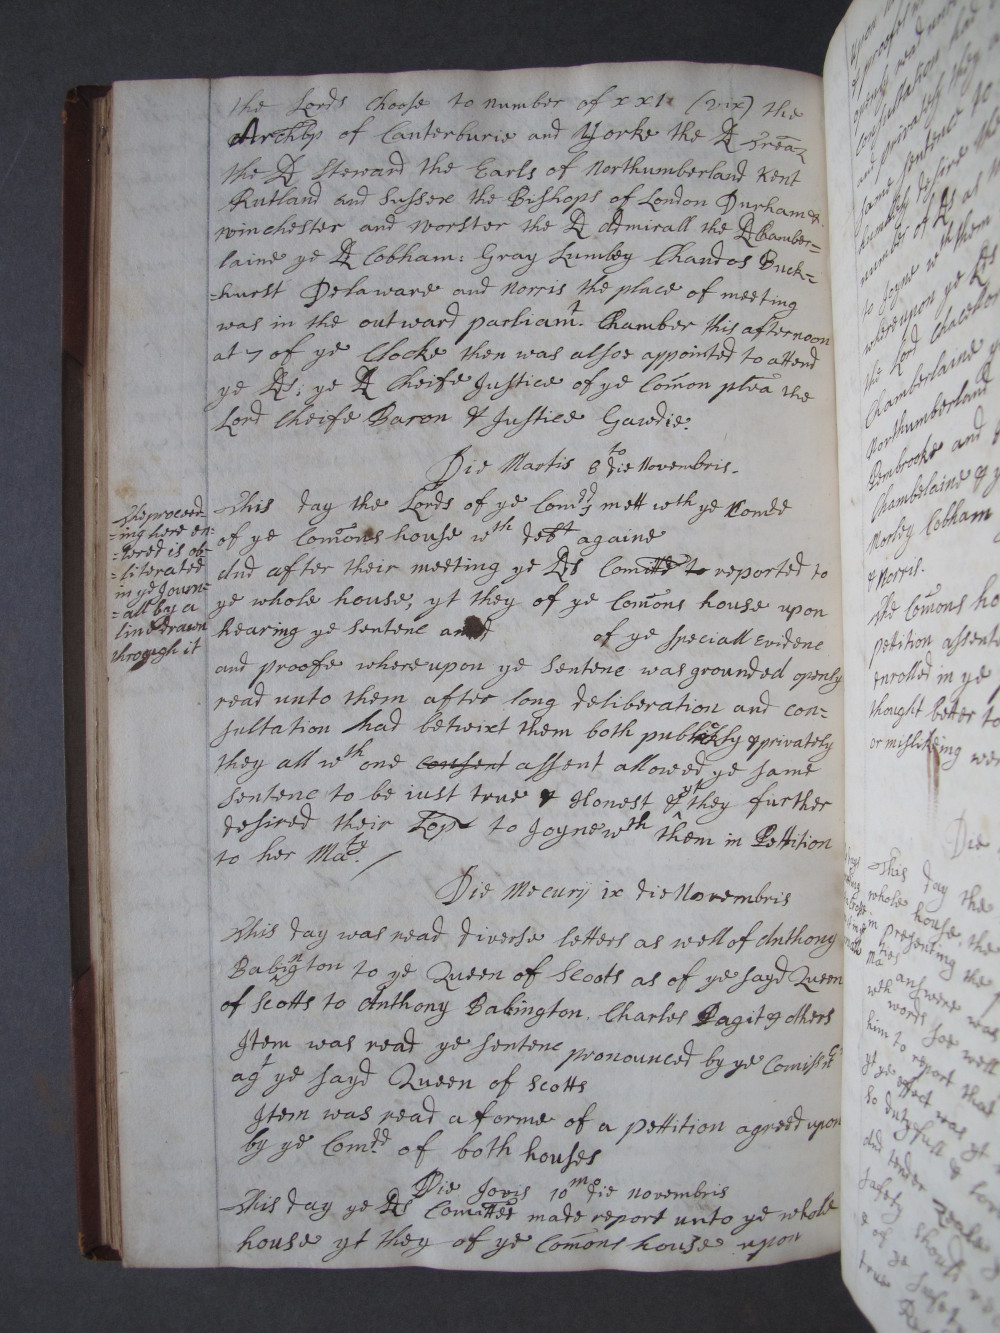 the Lords Choose to number of xxi: (viz) the
Archbp of Canterburie and Yorke the Ld Treãr
the Ld Steward the Earls of Northumberland Kent
Rutland and Sussex the Bishops of London Durham &
winchester and Worster the Ld Admirall the Ld Chamber=
laine ye Ld Cobham: Gray Lumley Chandos Buck=
=hurst Delaware and Norris the place of meeting
was in the outward parliamt. Chamber this afternoon
at 7 of ye Clocke then was alsoe appointed to attend
ye Lds: ye Ld Cheife Justice of ye Com̃on plea the
Lord Cheife Baron & Justice Gawdie.
Die Martis 8to die Novembris.
The proceed=
=ing here en=
=tered is ob=
=literated
in ye Journ=
=all by a
line drawn
through it
This day the Lords of ye Comdd mett wth ye Comde
of ye Com̃ons house wth debt againe
And after their meeting ye Lds Comitte to reported to
ye whole house, yt they of ye Com̃ons house upon
hearing ye Sentenc and of ye speciall Evidenc
and proofe whereupon ye Sentenc was grounded openly
read unto them after long deliberation and con=
sultation had betwixt them both publickly & privately
they all wth one consent assent allowed ye same
Sentenc to be iust true & Honest & yt they further
desired their Lops to Joyne wth them in Pettition
to her Maty.
Die Mecurij ix die Novembris
This day was read diverse letters as well of Anthony
Babington to ye Queen of Scoots as of ye sayd Queen
of Scotts to Anthony Babington. Charles Pagit & others
Item was read ye sentenc pronounced by ye Comissrs
agt ye sayd Queen of Scotts
Item was read a forme of a pettition agreed upon
by ye Comdd of both houses
Die Jovis 10mo die Novembris
This day ye Lds Comittes made report unto ye whole
house yt they of ye Com̃ons house upon
upon
& proofes
openly read unto
consultation had
and privately they
same sentence to
humbly desire the
number of Lds as
to Joyne wth them
whereupon ye Lds
the Lord Chacellor
Chamberlaine
Northumberland
Pembrooke and
Chamberlaine & y
Morley Cobham
& Norris.
The Com̃ons ho
petition assent
enrolled in ye
thought better to
or misliking wer
Die
This day the
whole house, the
in presenting the
Maties answere was
wth words soe well
him to report that
yt ye effect was yt
so dutyfull & lov
and tender zeale
safety should
of ye safety
true Re